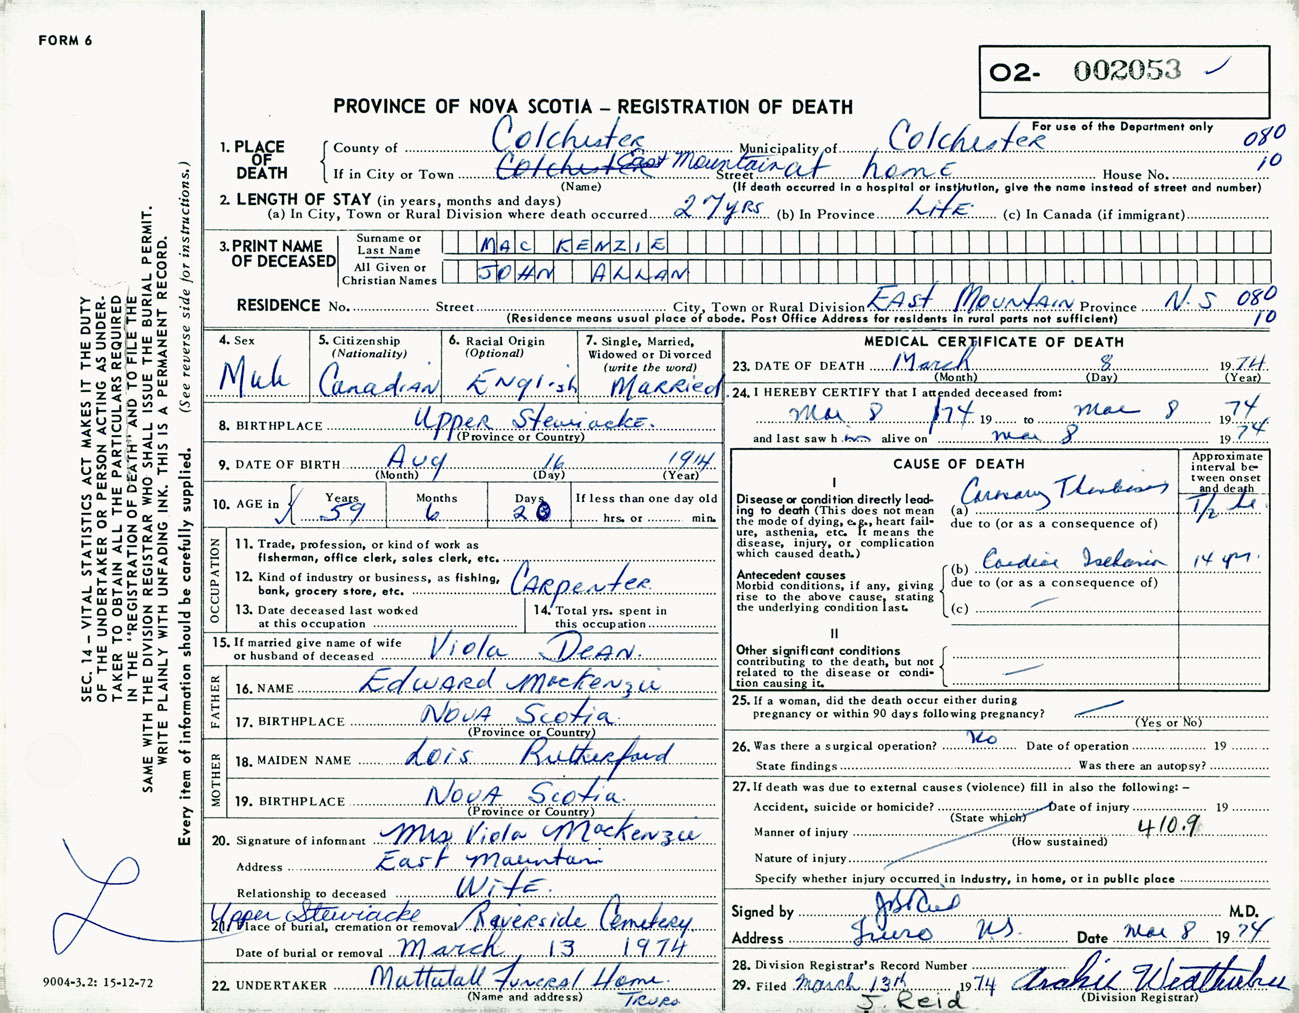 FORM 6
O2- 002053 ✓
PROVINCE OF NOVA SCOTIA – REGISTRATION OF DEATH
For use of the Department only
1. PLACE OF DEATH
County of Colchester Municipality of Colchester 080
If in City or Town Colchester East Mountain Street at home House No. 10
(Name) (If death occurred in a hospital or institution, give the name instead of street and number)
2. LENGTH OF STAY (in years, months and days)
(a) In City, Town or Rural Division where death occurred 27 yrs (b) In Province LiFE (c) In Canada (if immigrant)
3. PRINT NAME OF DECEASED
Surname or Last Name MAC KENZIE
All Given or Christian Names JOHN ALLAN
RESIDENCE No. Street City, Town or Rural Division EAST MOUNTAIN Province N.S 080
(Residence means usual place of abode. Post Office Address for residents in rural parts not sufficient) 10
4. Sex Male
5. Citizenship (Nationality) Canadian
6. Racial Origin (Optional) English
7. Single, Married, Widowed or Divorced (write the word) MARRIED
8. BIRTHPLACE Upper Stewiacke.
(Province or Country)
9. DATE OF BIRTH Aug 16 1914
(Month) (Day) (Year)
10. AGE in Years 59 Months 6 Days 20 If less than one day old hrs. or min.
OCCUPATION
11. Trade, profession, or kind of work as fisherman, office clerk, sales clerk, etc.
12. Kind of industry or business, as fishing, bank, grocery store, etc. CARPENTER
13. Date deceased last worked at this occupation
14. Total yrs. spent in this occupation
15. If married give name of wife or husband of deceased Viola DEAN.
FATHER
16. NAME Edward MacKenzie
17. BIRTHPLACE NOVA Scotia.
(Province or Country)
MOTHER
18. MAIDEN NAME Lois Rutherford
19. BIRTHPLACE NOVA Scotia.
(Province or Country)
20. Signature of informant Mrs Viola MacKenzie
Address East Mountain
Relationship to deceased WiFE.
Upper Stewiacke
21. Place of burial, cremation or removal Riverside Cemetery
Date of burial or removal March 13 1974
22. UNDERTAKER Mattatall Funeral Home.
(Name and address) TRURO
MEDICAL CERTIFICATE OF DEATH
23. DATE OF DEATH March 8 1974
(Month) (Day) (Year)
24. I HEREBY CERTIFY that I attended deceased from:
Mar 8 /74 19 to Mar 8 74
and last saw h im alive on Mar 8 1974
CAUSE OF DEATH
Approximate interval between onset and death
I
Disease or condition directly leading to death (This does not mean the mode of dying, e.g., heart failure, asthenia, etc. It means the disease, injury, or complication which caused death.)
(a) Coronary Thrombosis
due to (or as a consequence of)
Antecedent causes
Morbid conditions, if any, giving rise to the above cause, stating the underlying condition last.
(b) Cardiac Ischemia 14 yr.
due to (or as a consequence of)
(c) –
II
Other significant conditions
contributing to the death, but not related to the disease or condition causing it. –
25. If a woman, did the death occur either during pregnancy or within 90 days following pregnancy? –
(Yes or No)
26. Was there a surgical operation? No Date of operation 19
State findings Was there an autopsy?
27. If death was due to external causes (violence) fill in also the following: –
Accident, suicide or homicide? Date of injury 19
(State which)
Manner of injury 410.9
(How sustained)
Nature of injury
Specify whether injury occurred in industry, in home, or in public place
Signed by M.D.
Address Truro NS. Date Mar 8 1974
28. Division Registrar's Record Number
29. Filed March 13th 1974 Archie
(Division Registrar)
J. Reid
SEC. 14 – VITAL STATISTICS ACT MAKES IT THE DUTY
OF THE UNDERTAKER OR PERSON ACTING AS UNDER-
TAKER TO OBTAIN ALL THE PARTICULARS REQUIRED
IN THE "REGISTRATION OF DEATH" AND TO FILE THE
SAME WITH THE DIVISION REGISTRAR WHO SHALL ISSUE THE BURIAL PERMIT.
WRITE PLAINLY WITH UNFADING INK. THIS IS A PERMANENT RECORD.
Every item of information should be carefully supplied. (See reverse side for instructions.)
9004-3.2: 15-12-72